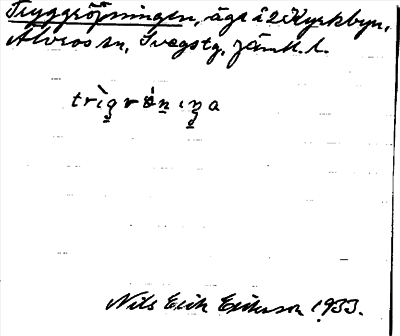 Tryggröjningen, äga i 2 Kyrkbyn,
Älvros sn, Svegs tg, Jämtl. l.
Nils Erik Eriksson 1933.